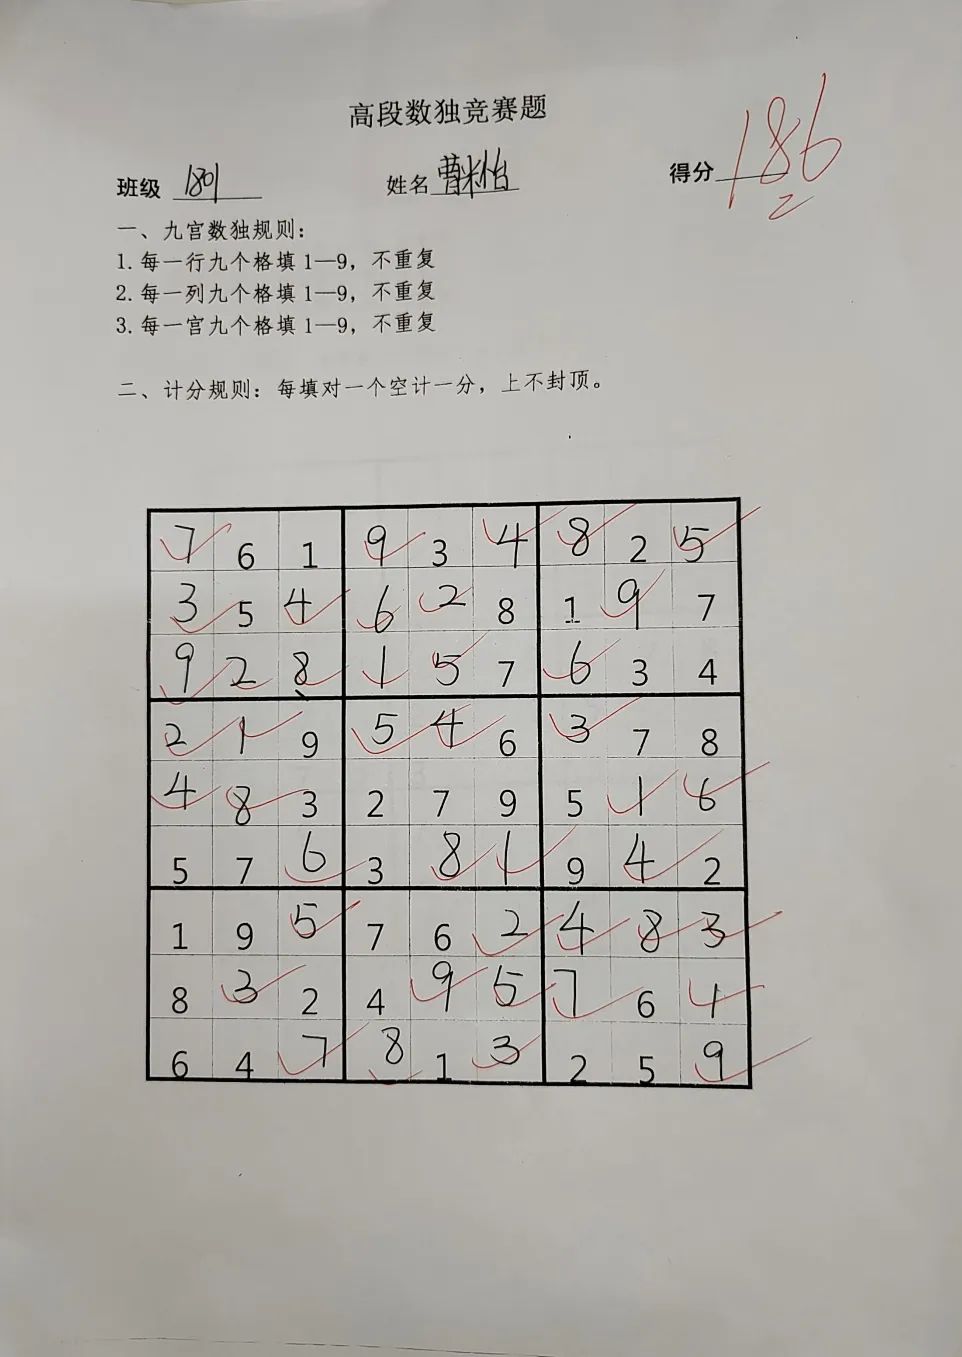 高段数独竞赛题
班级 1801 姓名 曹米怡 得分 186
2
一、九宫数独规则：
1.每一行九个格填1—9，不重复
2.每一列九个格填1—9，不重复
3.每一宫九个格填1—9，不重复
二、计分规则：每填对一个空计一分，上不封顶。
7 6 1 9 3 4 8 2 5
3 5 4 6 2 8 1 9 7
9 2 8 1 5 7 6 3 4
2 1 9 5 4 6 3 7 8
4 8 3 2 7 9 5 1 6
5 7 6 3 8 1 9 4 2
1 9 5 7 6 2 4 8 3
8 3 2 4 9 5 7 6 1
6 4 7 8 1 3 2 5 9